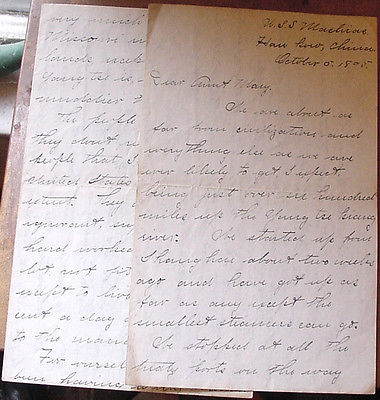 U.S.S. Machias
Han Kow, China
October 5, 1895.
Dear Aunt Mary,
We are about as
far from civilization and
everything else as we are
ever likely to get I expect
being just over six hundred
miles up the Yang tse Kiang
river. We started up from
Shanghai about two weeks
ago and have got up as
far as any except the
smallest steamers can go.
We stopped at all the
treaty ports on the way
very much
Missouri
lands
Yang tse is
muddier
The people
they about
people that I
United States
ignorant,
hard worked
lot not
except to live
cent a day
to the
For ourselves
been having